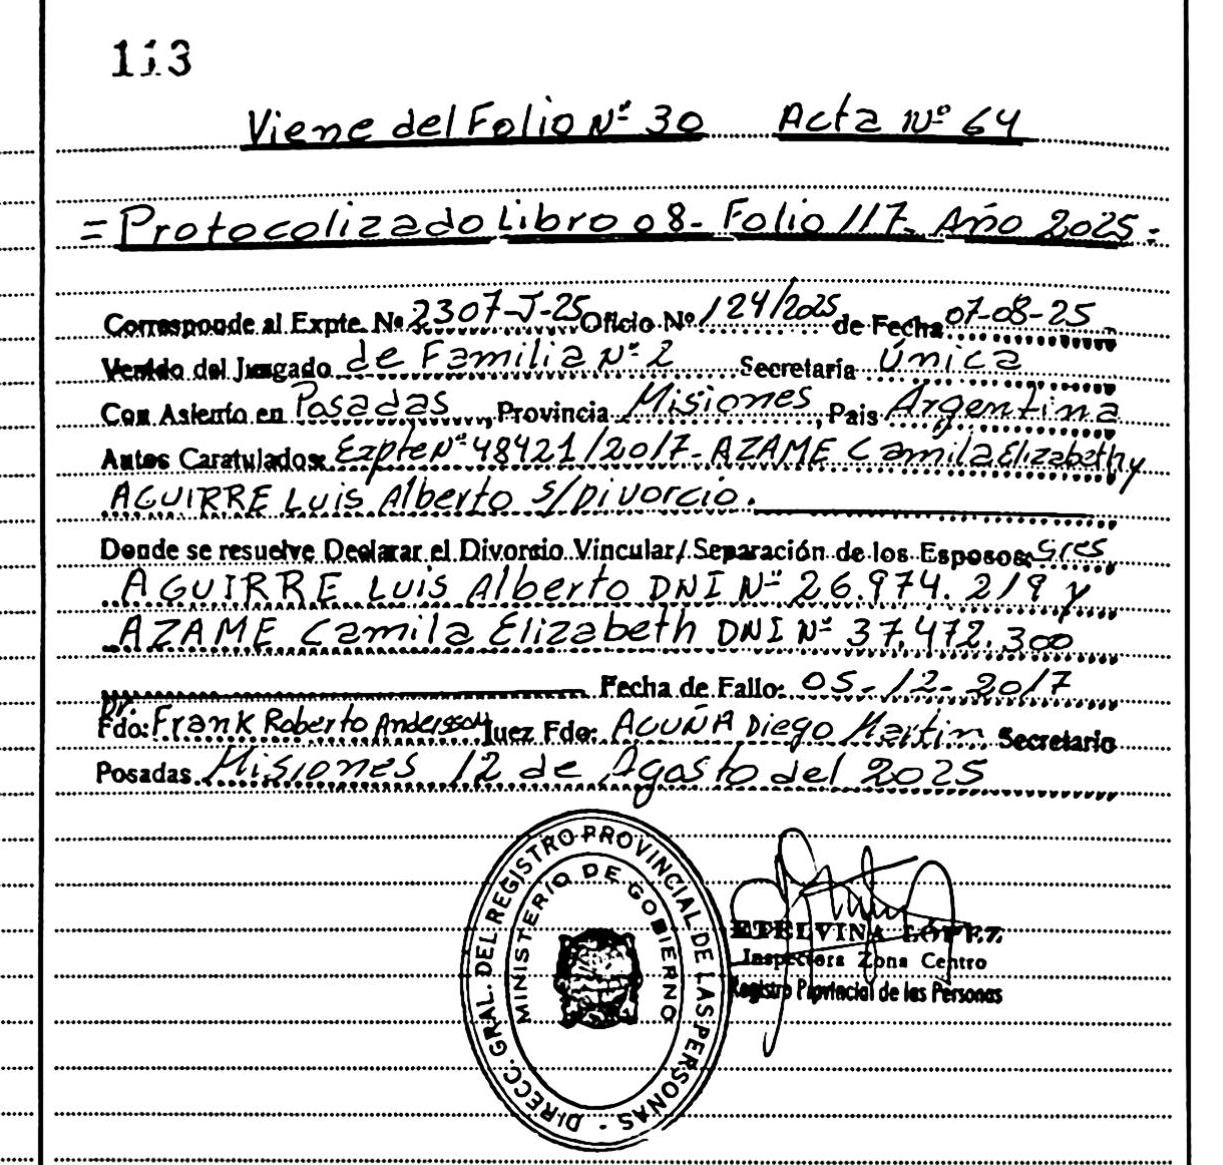 113
Viene del Folio Nº 30 Acta Nº 64
= Protocolizado Libro 08- Folio 117- Año 2025-
Corresponde al Expte. Nº 2307-J-25 Oficio Nº 124/2025 de Fecha 07-08-25
Venido del Juzgado de Familia Nº 2 Secretaría Única
Con Asiento en Posadas, Provincia Misiones, Pais Argentina
Autos Caratulados: Expte Nº 48421/2017- AZAME Camila Elizabeth y
AGUIRRE Luis Alberto s/Divorcio.
Donde se resuelve Declarar el Divorcio Vincular/Separación de los Esposos: Sres
AGUIRRE Luis Alberto DNI Nº 26.974.219 y
AZAME Camila Elizabeth DNI Nº 37.472.300
Fecha de Fallo: 05-12-2017
Fdo: Dr. Frank Roberto Andersson Juez Fdo: ACUÑA Diego Martin Secretario
Posadas Misiones 12 de Agosto del 2025
DIRECC. GRAL. DEL REGISTRO PROVINCIAL DE LAS PERSONAS -
MINISTERIO DE GOBIERNO
ETELVINA LOPEZ
Inspectora Zona Centro
Registro Provincial de las Personas